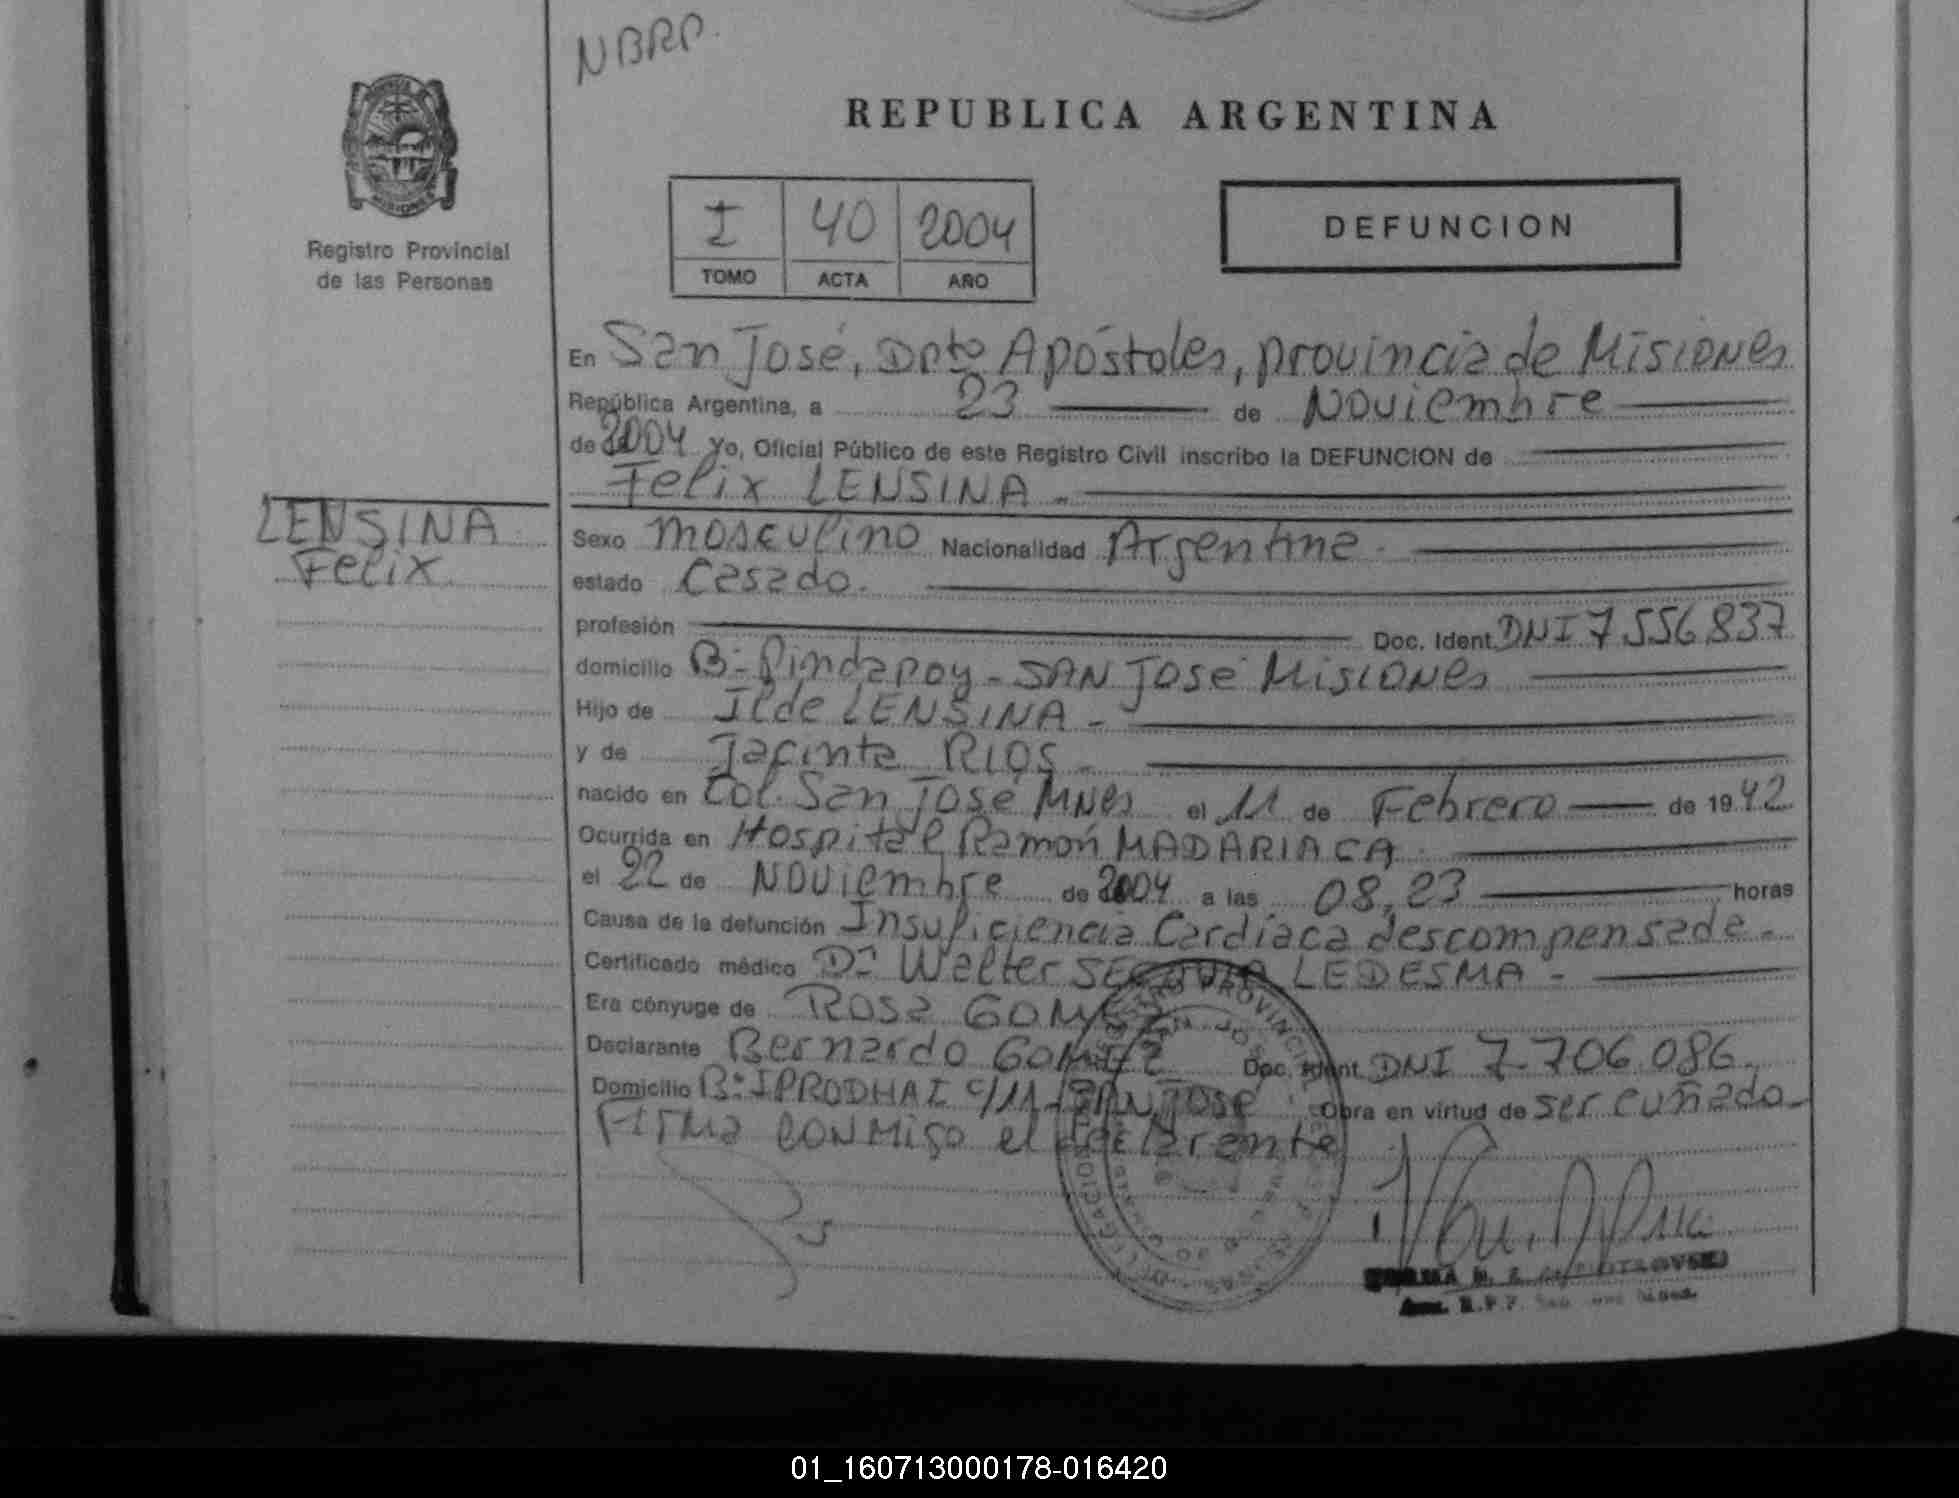 NBRP.
REPUBLICA ARGENTINA
MISIONES
Registro Provincial
de las Personas
I 40 2004
TOMO ACTA AÑO
DEFUNCION
En San José, Dpto Apóstoles, provincia de Misiones
República Argentina, a 23 de Noviembre
de 2004 Yo, Oficial Público de este Registro Civil inscribo la DEFUNCION de
Felix LENSINA
LENSINA
Felix
Sexo masculino Nacionalidad Argentina
estado Casado.
profesión Doc. Ident. DNI 7556837
domicilio B: Pindapoy - SAN José Misiones
Hijo de Ilde LENSINA -
y de Jacinta RIOS -
nacido en Col. San José Mnes el 11 de Febrero de 1942
Ocurrida en Hospital Ramón MADARIAGA
el 22 de Noviembre de 2004 a las 08,23 horas
Causa de la defunción Insuficiencia Cardiaca descompensada.
Certificado médico Dr. Walter SEGOVIA LEDESMA -
Era cónyuge de Rosa GOMEZ
Declarante Bernardo GOMEZ Doc. Ident. DNI 7.706.086.
Domicilio B: IPRODHAI c/11 - SAN José Obra en virtud de ser cuñado -
Firma conmigo el declarante
01_160713000178-016420